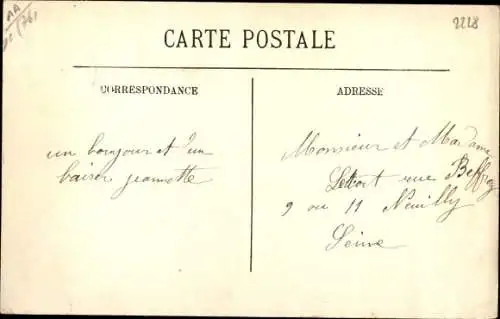 AA
(76)
2228
CARTE POSTALE
CORRESPONDANCE
ADRESSE
un bonjour et un
baiser jeannette
Monsieur et Madame
rue Beffroy
9 ou 11 Neuilly
Seine